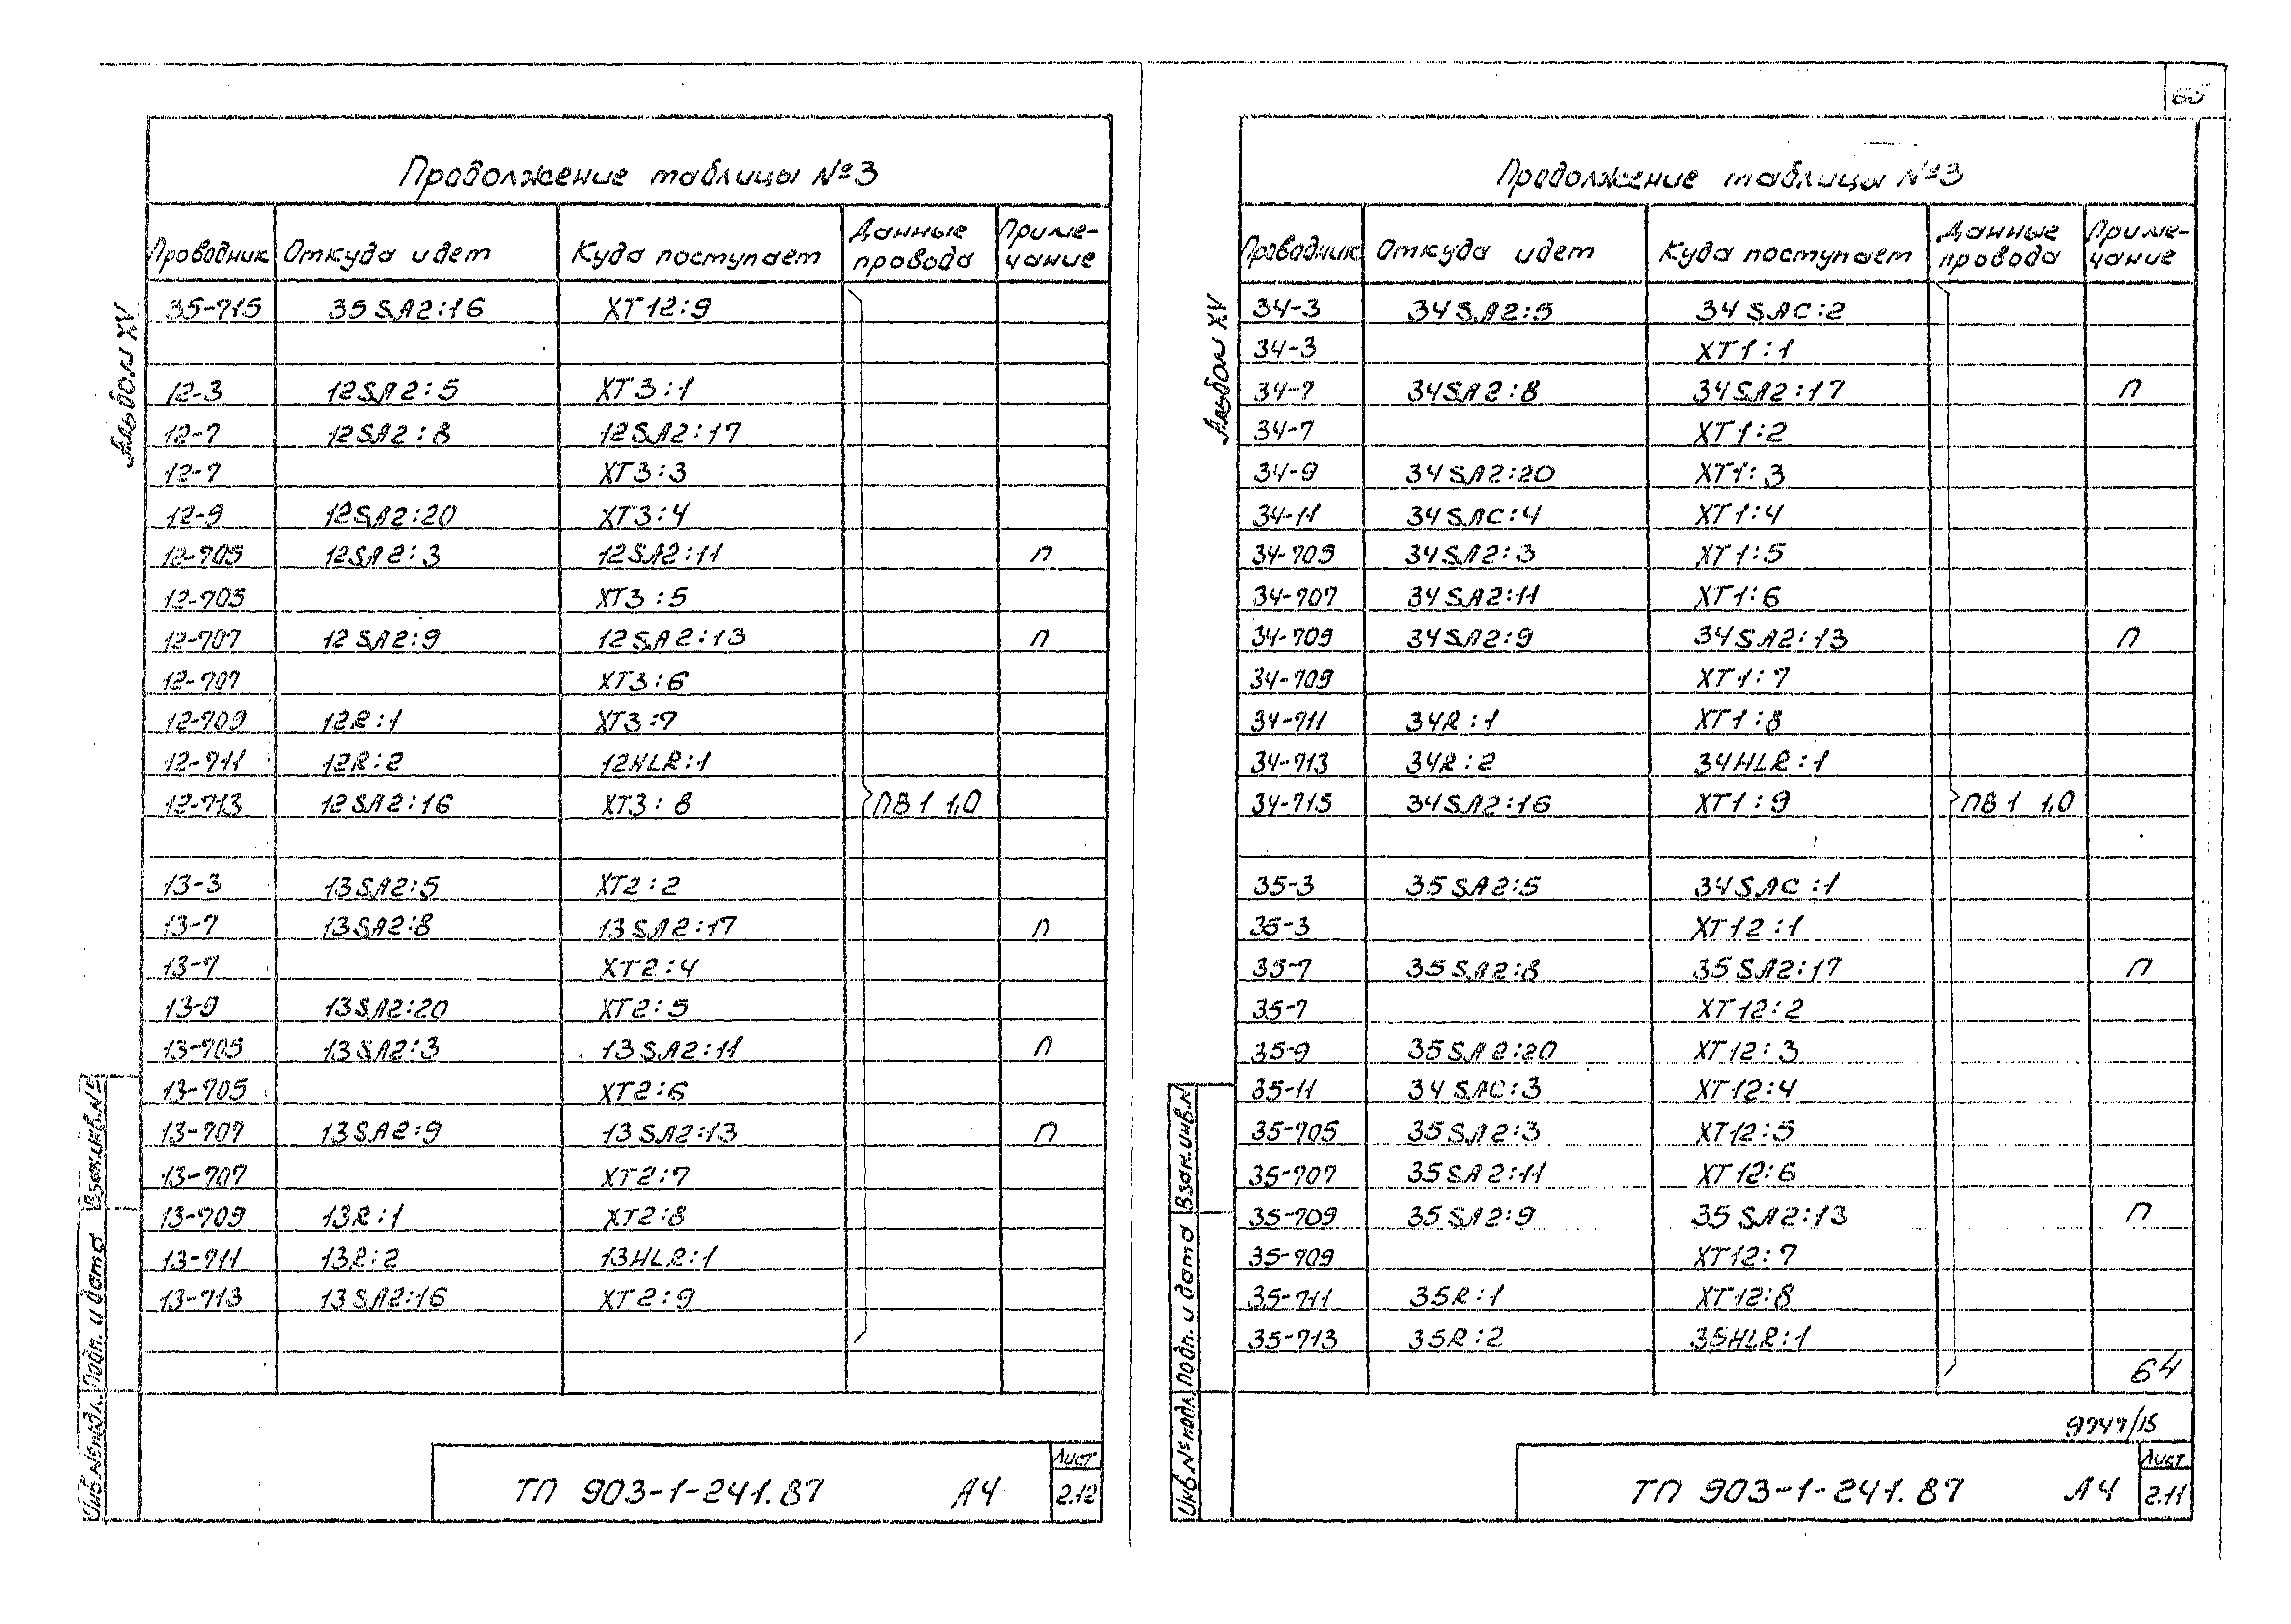 65
Продолжение таблицы №3
Проводник Откуда идет Куда поступает Данные провода Приме-чание
35-715 35SA2:16 XT12:9
12-3 12SA2:5 XT3:1
12-7 12SA2:8 12SA2:17
12-7 XT3:3
12-9 12SA2:20 XT3:4
12-705 12SA2:3 12SA2:11 П
12-705 XT3:5
12-707 12SA2:9 12SA2:13 П
12-707 XT3:6
12-709 12R:1 XT3:7
12-711 12R:2 12HLR:1
12-713 12SA2:16 XT3:8 ПВ1 1,0
13-3 13SA2:5 XT2:2
13-7 13SA2:8 13SA2:17 П
13-7 XT2:4
13-9 13SA2:20 XT2:5
13-705 13SA2:3 13SA2:11 П
13-705 XT2:6
13-707 13SA2:9 13SA2:13 П
13-707 XT2:7
13-709 13R:1 XT2:8
13-711 13R:2 13HLR:1
13-713 13SA2:16 XT2:9
Альбом XV
Инв.№подл. Подп. и дата Взам.инв.№
ТП 903-1-241.87 А4
Лист
2.12
Продолжение таблицы №3
Проводник Откуда идет Куда поступает Данные провода Приме-чание
34-3 34SA2:5 34SAC:2
34-3 XT1:1
34-7 34SA2:8 34SA2:17 П
34-7 XT1:2
34-9 34SA2:20 XT1:3
34-11 34SAC:4 XT1:4
34-705 34SA2:3 XT1:5
34-707 34SA2:11 XT1:6
34-709 34SA2:9 34SA2:13 П
34-709 XT1:7
34-711 34R:1 XT1:8
34-713 34R:2 34HLR:1
34-715 34SA2:16 XT1:9 ПВ1 1,0
35-3 35SA2:5 34SAC:1
35-3 XT12:1
35-7 35SA2:8 35SA2:17 П
35-7 XT12:2
35-9 35SA2:20 XT12:3
35-11 34SAC:3 XT12:4
35-705 35SA2:3 XT12:5
35-707 35SA2:11 XT12:6
35-709 35SA2:9 35SA2:13 П
35-709 XT12:7
35-711 35R:1 XT12:8
35-713 35R:2 35HLR:1
64
Альбом XV
Инв.№подл. Подп. и дата Взам.инв.№
9747/15
ТП 903-1-241.87 А4
Лист
2.11